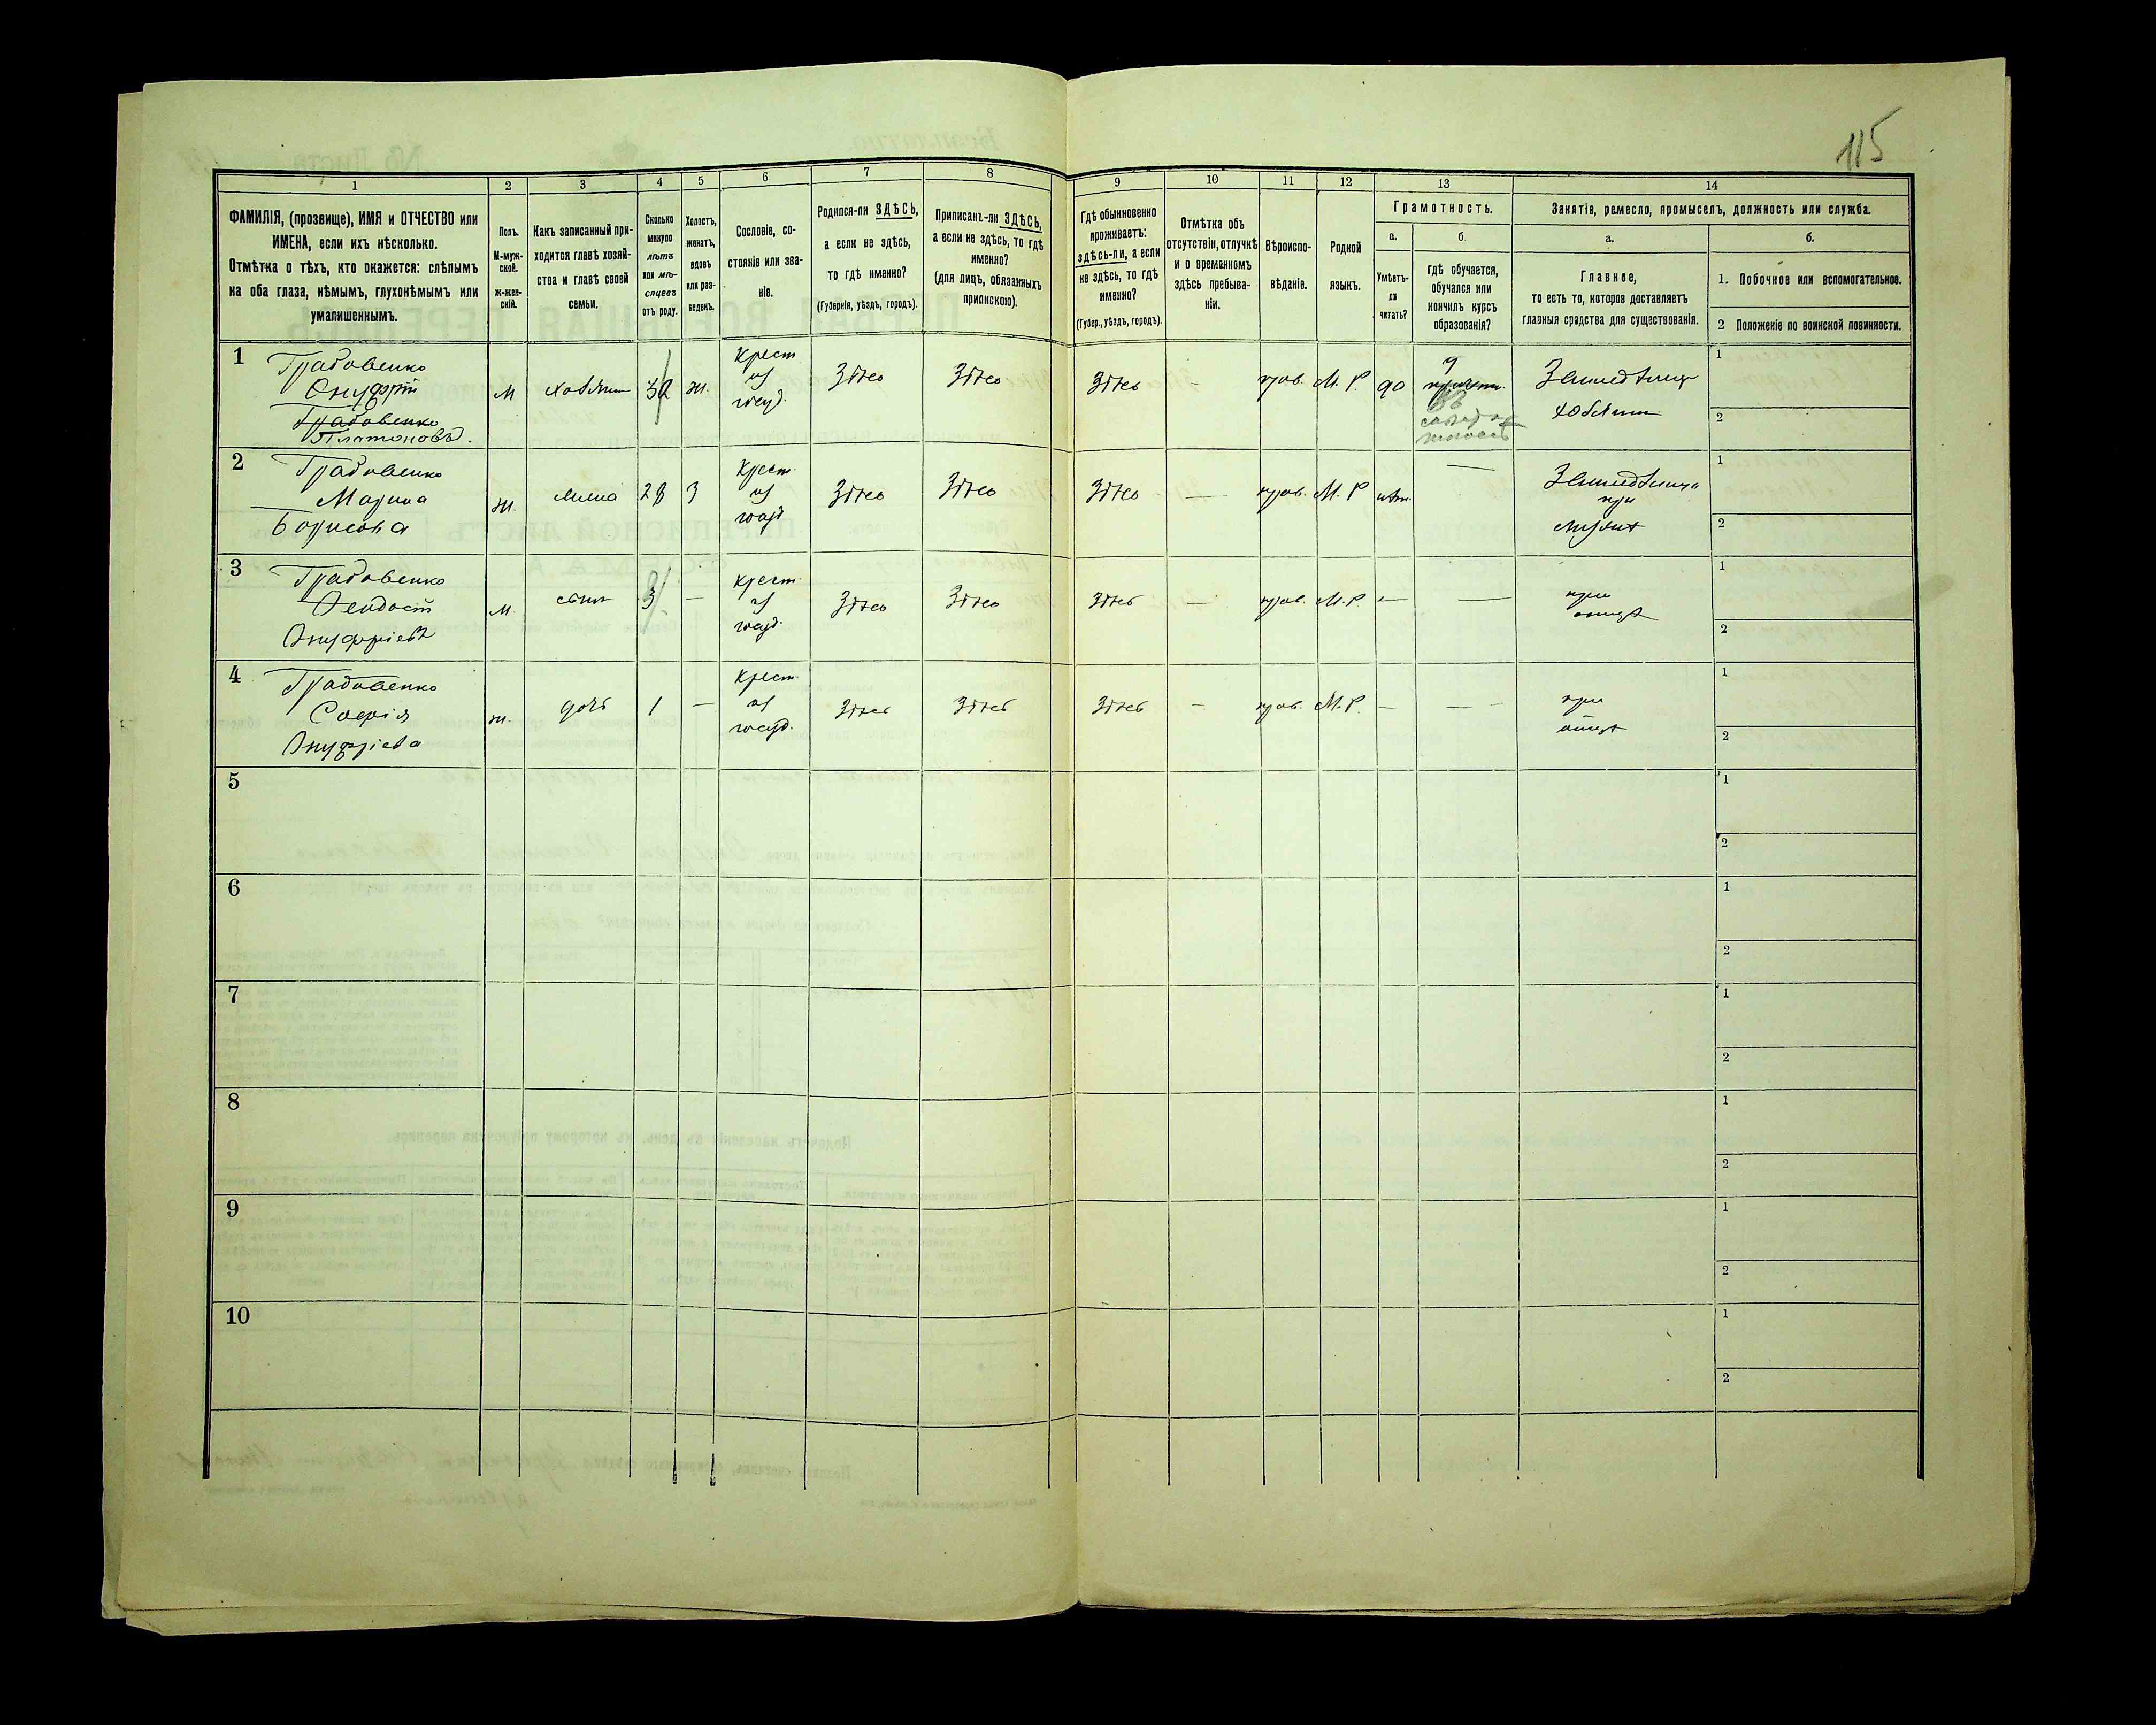 115
1 2 3 4 5 6 7 8 9 10 11 12 13 14
ФАМИЛІЯ, (прозвище), ИМЯ и ОТЧЕСТВО или
ИМЕНА, если ихъ нѣсколько.
Отмѣтка о тѣхъ, кто окажется: слѣпымъ
на оба глаза, нѣмымъ, глухонѣмымъ или
умалишеннымъ.
Полъ.
М-муж-
ской.
ж-жен-
скій.
Какъ записанный при-
ходится главѣ хозяй-
ства и главѣ своей
семьи.
Сколько
минуло
лѣтъ
или мѣ-
сяцевъ
отъ роду.
Холостъ,
женатъ,
вдовъ
или раз-
веденъ.
Сословіе, со-
стояніе или зва-
ніе.
Родился-ли ЗДѢСЬ,
а если не здѣсь,
то гдѣ именно?
(Губернія, уѣздъ, городъ).
Приписанъ-ли ЗДѢСЬ,
а если не здѣсь, то гдѣ
именно?
(для лицъ, обязанныхъ
припискою).
Гдѣ обыкновенно
проживаетъ:
здѣсь-ли, а если
не здѣсь, то гдѣ
именно?
(Губер., уѣздъ, городъ).
Отмѣтка объ
отсутствіи, отлучкѣ
и о временномъ
здѣсь пребыва-
ніи.
Вѣроиспо-
вѣданіе.
Родной
языкъ.
Грамотность.
а.
Умѣетъ-
ли
читать?
б.
гдѣ обучается,
обучался или
кончилъ курсъ
образованія?
Занятіе, ремесло, промыселъ, должность или служба.
а.
Главное,
то есть то, которое доставляетъ
главныя средства для существованія.
б.
1. Побочное или вспомогательное.
2 Положеніе по воинской повинности.
1
Градовенко
Онуфрій
Градовенко
Платоновъ.
М
хозяинъ
32
ж.
Крест
из
госуд.
Здѣсь
Здѣсь
Здѣсь
прав.
М. Р.
да
Земледѣлецъ
хозяинъ
1
2
2
Градовенко
Марина
Борисова
ж.
жена
28
З
Крест
из
госуд
Здѣсь
Здѣсь
Здѣсь
—
прав.
М. Р
нѣт.
—
Земледѣлица
при
мужѣ
1
2
3
Градовенко
Феодосій
Онуфріевъ
м.
сынъ
3
—
Крест.
из
госуд.
Здѣсь
Здѣсь
Здѣсь
—
прав.
М. Р.
—
—
при
отцѣ
1
2
4
Градовенко
Софія
Онуфріева
ж.
дочь
1
—
Крест.
из
госуд.
Здѣсь
Здѣсь
Здѣсь
—
прав.
М. Р.
—
—
при
отцѣ
1
2
5
1
2
6
1
2
7
1
2
8
1
2
9
1
2
10
1
2